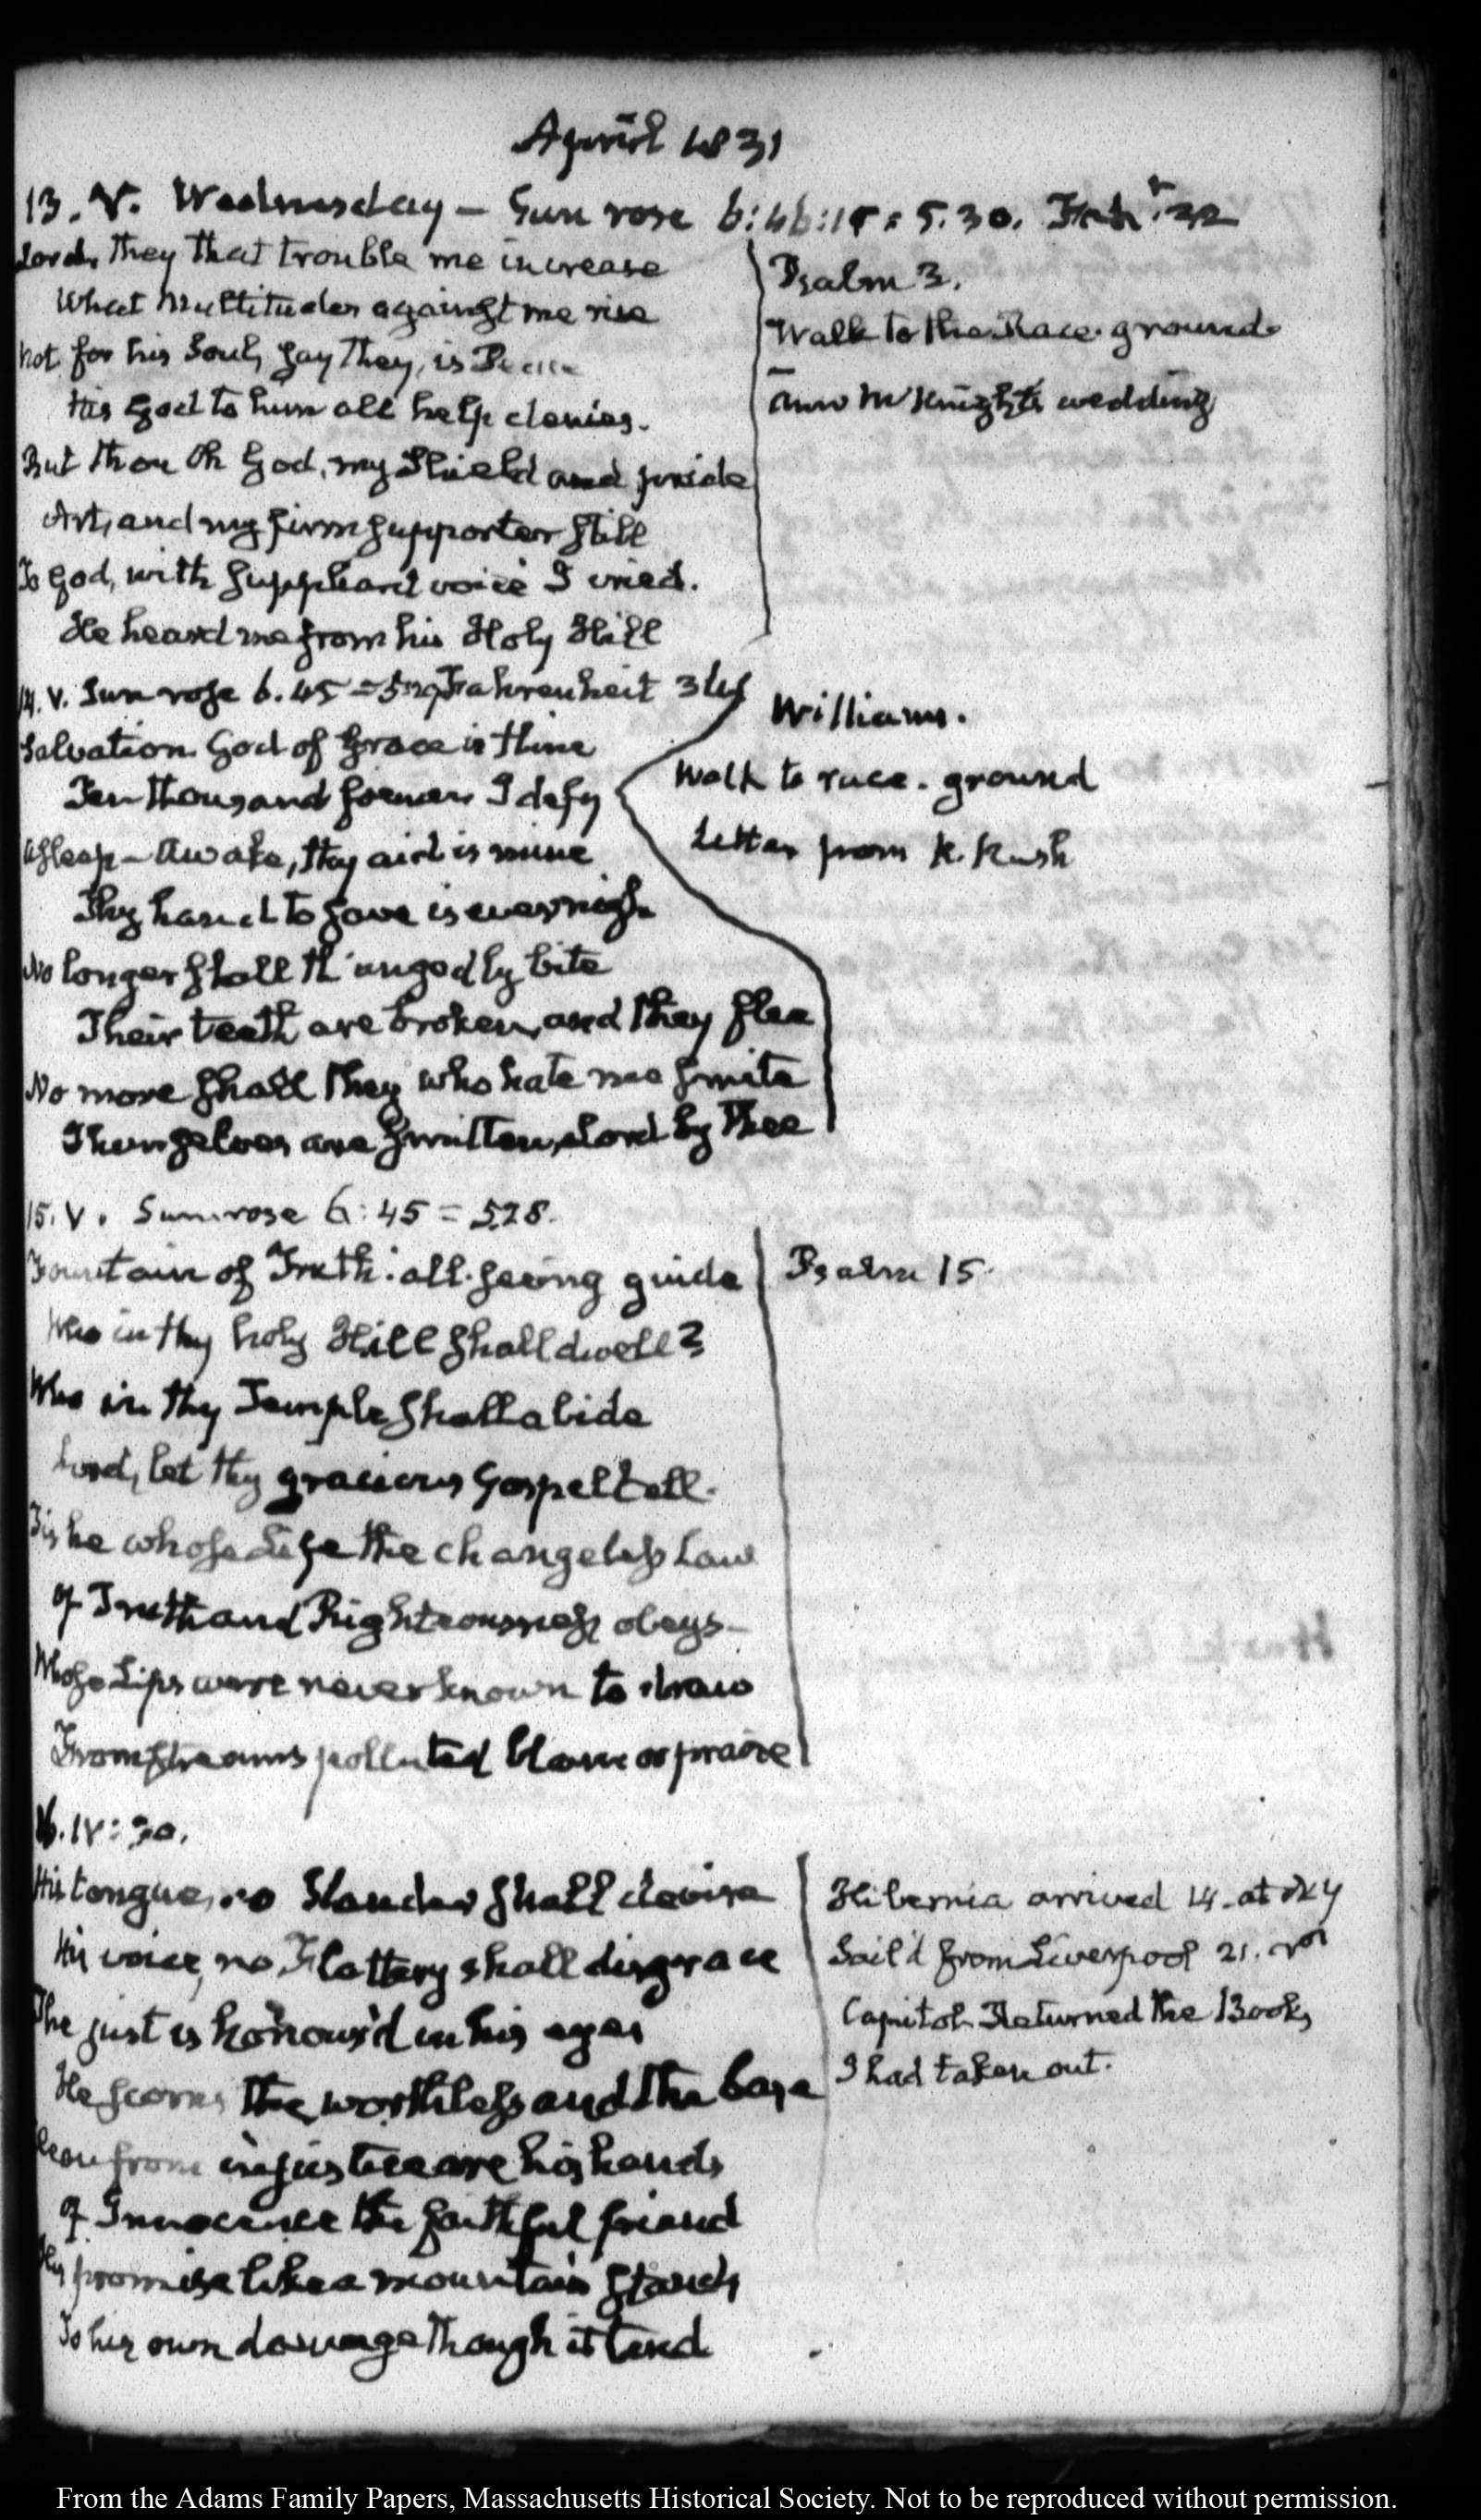 April 1831
13. V. Wednesday — Sun rose 6:46:15 = 5.30. Fah.t 32
Lord, they that trouble me increase
What Multitudes against me rise
Not for his Soul, say they, is Peace
His God to him all help denies.
But thou Oh God, my Shield and pride
Art, and my firm supporter still
To God, with suppliant voice I cried.
He heard me from his Holy Hill
Psalm 3.
Walk to the Race-ground
Ann McKnight's wedding
14. V. Sun rose 6.45 = Fahrenheit
Salvation God of Grace is thine
Ten thousand foemen I defy
Asleep — Awake, thy aid is mine
Thy hand to save is ever nigh
No longer shall th'ungodly bite
Their teeth are broken, and they flee
No more shall they who hate me smite
Themselves are smitten, Lord by Thee
Williams.
Walk to race-ground
Letter from R. Rush
15. V. Sun rose 6:45 = 5.28.
Fountain of Truth: all-seeing guide
Who in thy holy Hill shall dwell?
Who in thy Temple shall abide
Lord, let thy gracious Gospel tell.
Tis he whose Life the changeless Law
Of Truth and Righteousness obeys—
Whose Lips were never known to draw
From streams polluted blame or praise
Psalm 15.
16. IV:30.
His tongue, no Slander shall devise
His voice, no Flattery shall disgrace
The just is honour'd in his eyes
He scorns the worthless and the base
Clean from injustice are his hands
Of Innocence the faithful friend
His promise like a mountain stands
To his own damage though it tend
Hibernia arrived 14. at N.Y
Sail'd from Liverpool 21.
Capitol. Returned the Books
I had taken out.
From the Adams Family Papers, Massachusetts Historical Society. Not to be reproduced without permission.